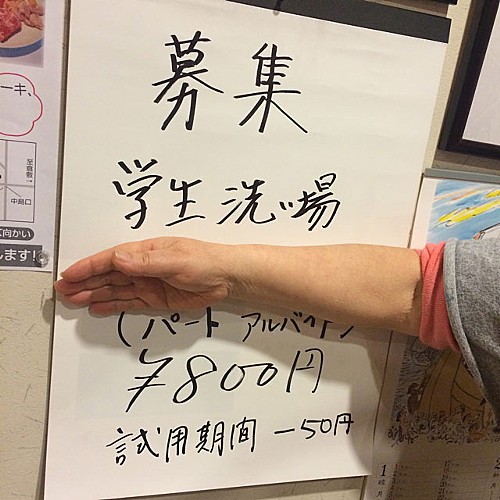 募集
学生洗い場
(パート アルバイト)
¥800円
試用期間 −50円
ーキ、
至倉敷→
中島口
て向かい
します!
1